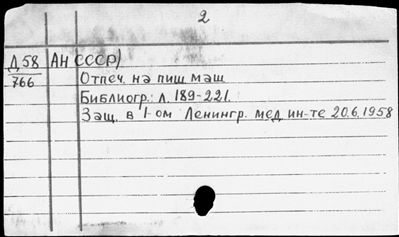 2
Д58 АН СССР)
766 Отпеч. на пиш. маш.
Библиогр.: л. 189-221.
Защ. в 1-ом Ленингр. мед. ин-те 20.6.1958